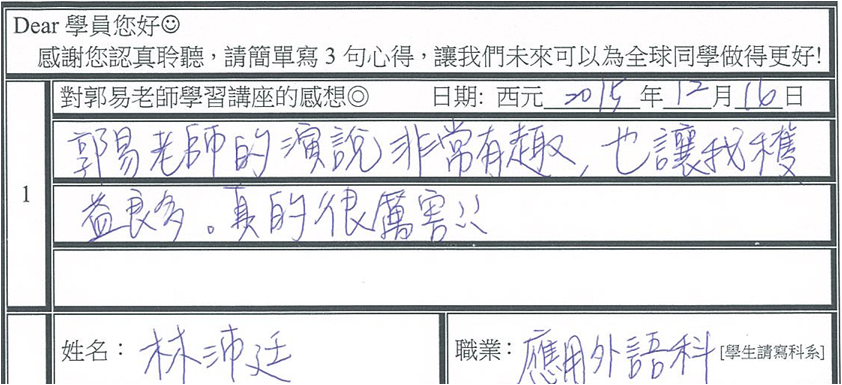 Dear 學員您好☺
感謝您認真聆聽，請簡單寫 3 句心得，讓我們未來可以為全球同學做得更好!
1
對郭易老師學習講座的感想◎ 日期: 西元 2015 年 12 月 16 日
郭易老師的演說非常有趣，也讓我穫
益良多。真的很厲害!!
姓名： 林沛廷 職業： 應用外語科 [學生請寫科系]